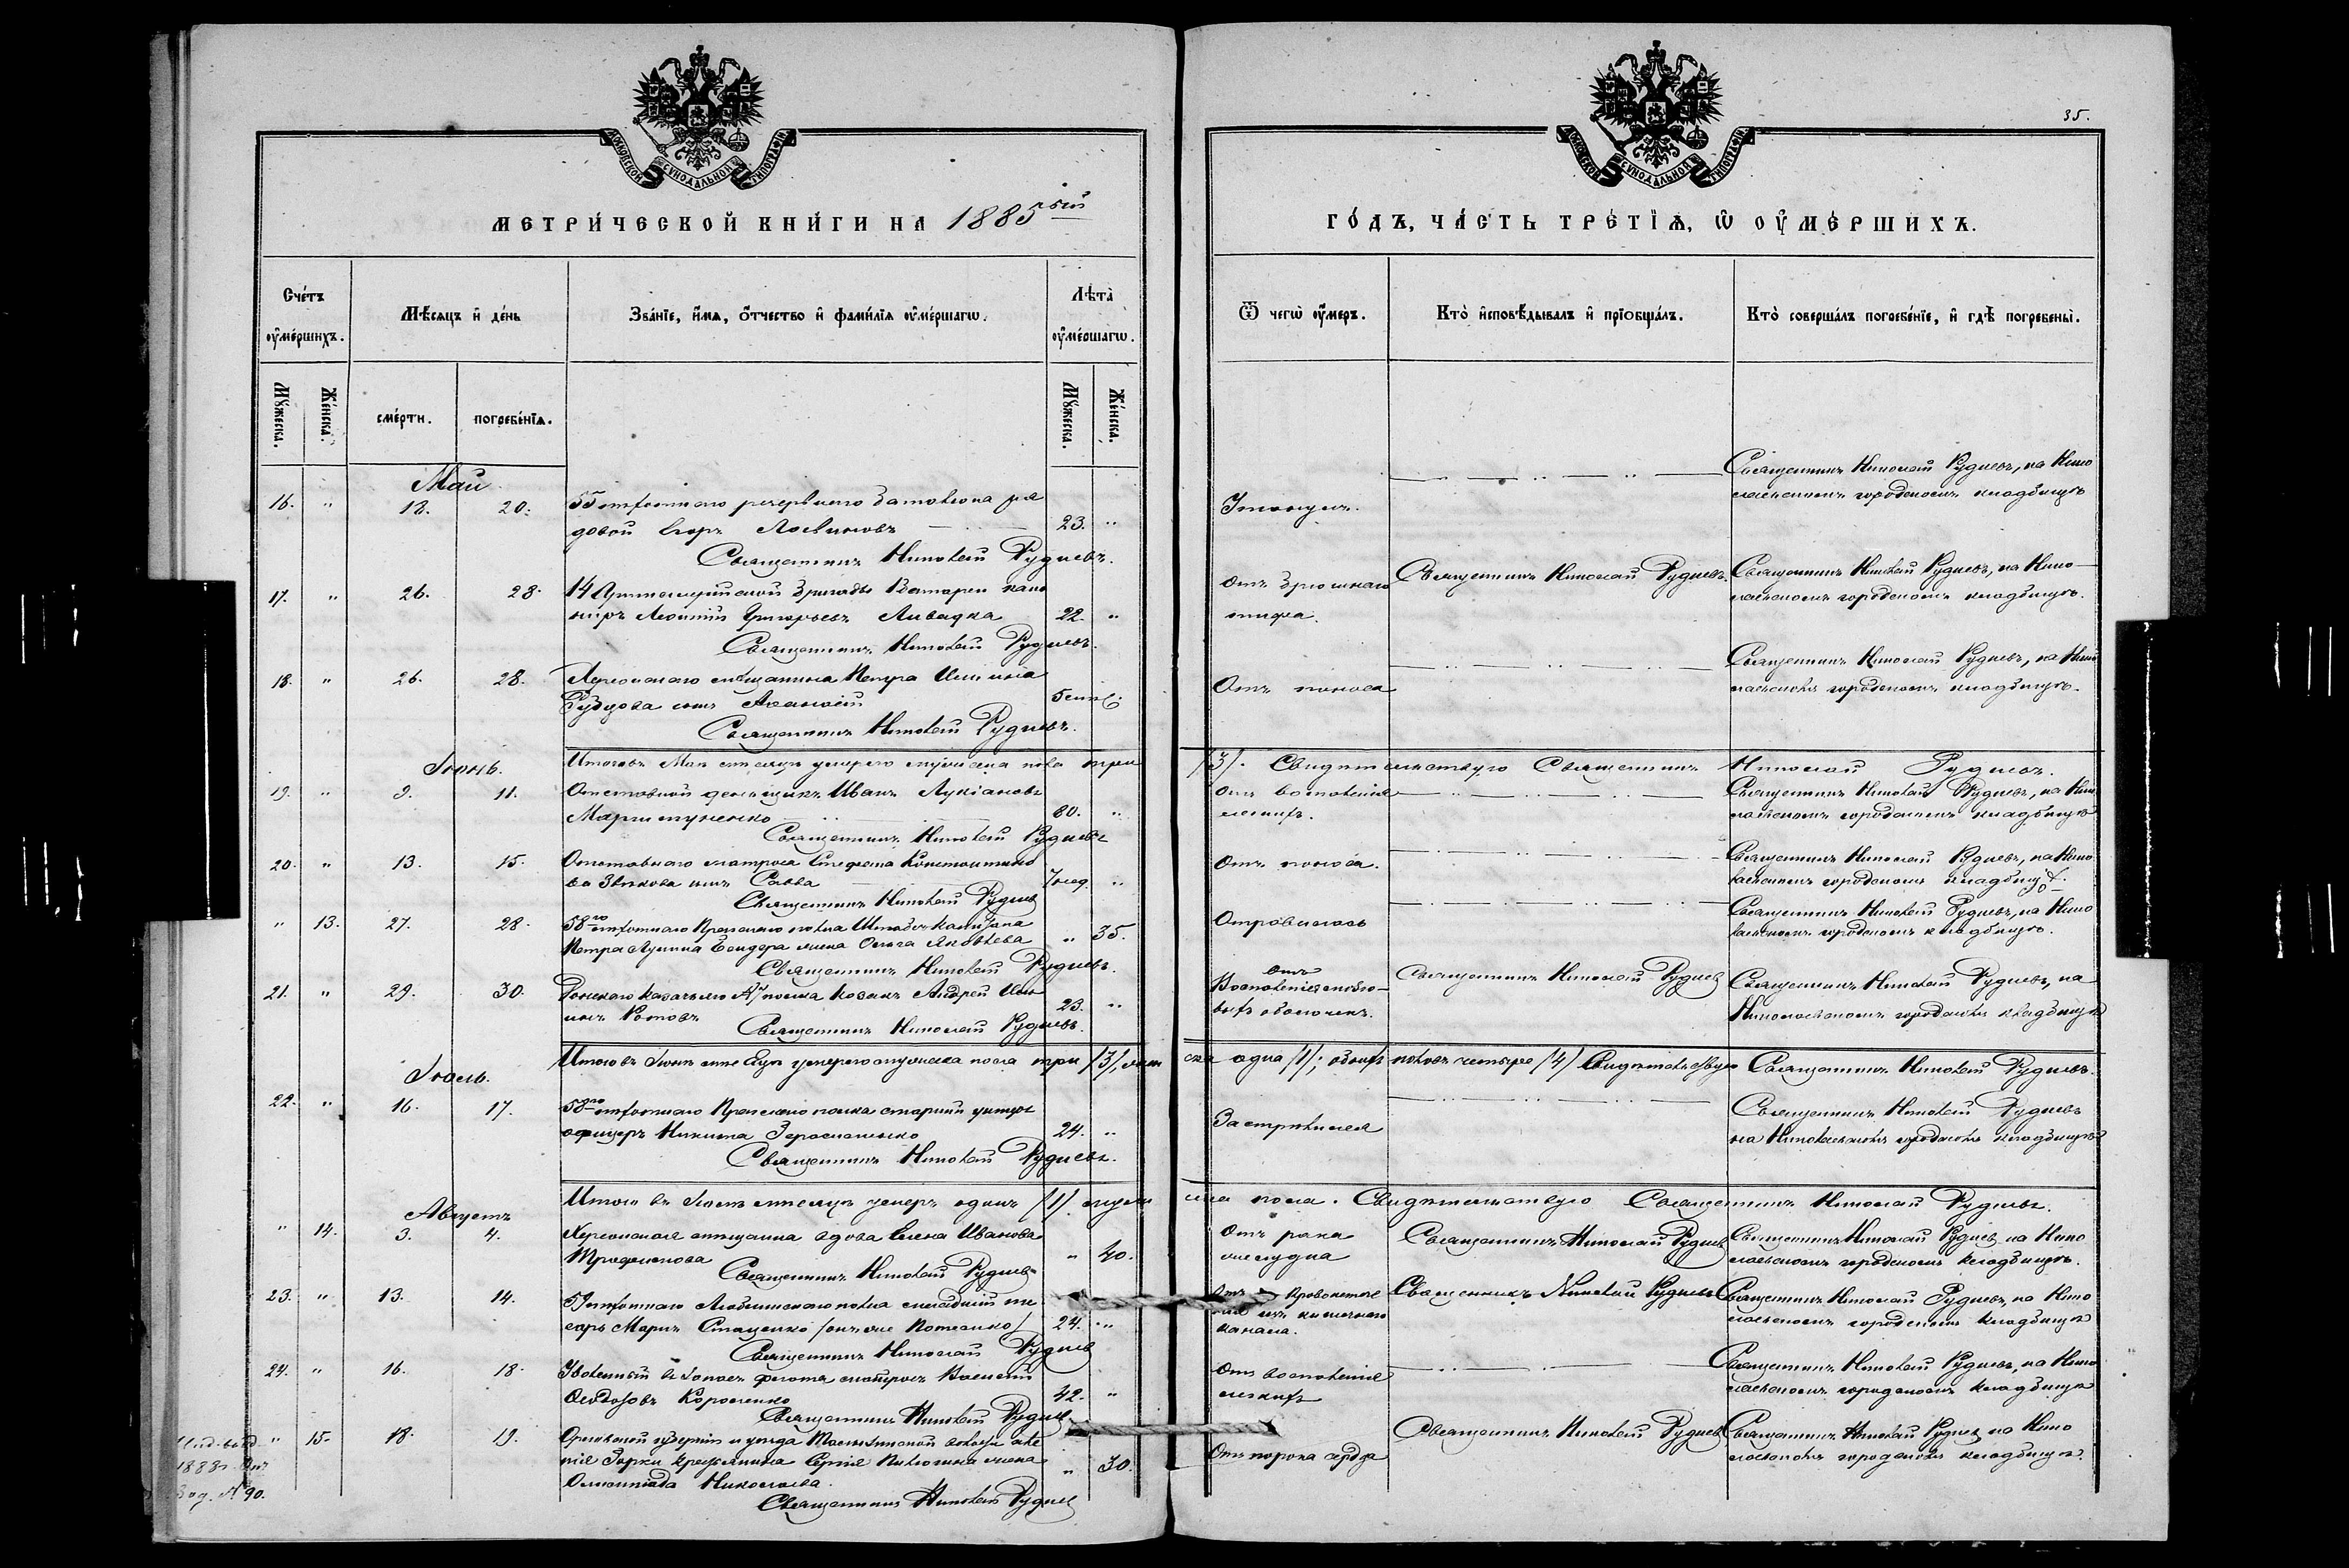 35.
МОСКОВСКОЙ СѴНОДАЛЬНОЙ ТѴПОГРАФІИ
МОСКОВСКОЙ СѴНОДАЛЬНОЙ ТѴПОГРАФІИ
МЕТРИ́ЧЕСКОЙ КНИ́ГИ НА 1885
ГО́ДЪ, ЧА́СТЬ ТРЕ́ТІѦ, Ѡ҆ ОУ҆МЕ́РШИХЪ.
Сче́тъ оу҆ме́ршихъ.
Мѣ́сяцъ и҆ де́нь
Зва́нїе, и҆́мѧ, о҆́тчество и҆ фами́лїѧ оу҆ме́ршагѡ.
Лѣта̀ оу҆ме́ршагѡ.
Ѿ чегѡ̀ оу҆́меръ.
Кто̀ и҆сповѣ́дывалъ и҆ прїобща́лъ.
Кто̀ соверша́лъ погребе́нїе, и҆ гдѣ̀ погребены̀.
Мꙋ́жеска.
Же́нска.
сме́рти.
погребе́нїѧ.
Мꙋ́жеска.
Же́нска.
Май
16. " 18. 20. 55 пѣхотнаго резервнаго баталіона ря
довой Егоръ Логвиновъ 23. "
Священникъ Николай Рудневъ.
Утонулъ.
Священникъ Николай Рудневъ, на Нико
лаевскомъ городскомъ кладбищѣ
17. " 26. 28. 14 Артиллерійской бригады батареи кано
ниръ Леонтій Григорьевъ Ливадка 22. "
Священникъ Николай Рудневъ.
Отъ брюшнаго
тифа.
Священникъ Николай Рудневъ.
Священникъ Николай Рудневъ, на Нико
лаевскомъ городскомъ кладбищѣ.
18. " 26. 28. Херсонскаго мѣщанина Петра Ильина
Рубцова сынъ Аѳанасій
Священникъ Николай Рудневъ.
Отъ поноса
Священникъ Николай Рудневъ, на Нико
лаевскомъ городскомъ кладбищѣ.
Итого въ Маѣ мѣсяцѣ умерло мужеска пола три /3/. Свидѣтельствую Священникъ Николай Рудневъ.
Іюнь.
19. " 9. 11. Отставной деньщикъ Иванъ Лукіановъ
Мартыненко 80. "
Священникъ Николай Рудневъ
Отъ воспаленія
легкихъ.
Священникъ Николай Рудневъ, на Нико
лаевскомъ городскомъ кладбищѣ
20. " 13. 15. Отставнаго матроса Стефана Константино
ва Звѣкова сынъ Савва 7 нед. "
Священникъ Николай Рудневъ
Отъ поноса.
Священникъ Николай Рудневъ, на Нико
лаевскомъ городскомъ кладбищѣ.
" 13. 27. 28. 58го пѣхотнаго Прагскаго полка Штабсъ-Капитана
Петра жена Ольга Яковлева " 35.
Священникъ Николай Рудневъ.
Отравилась
Священникъ Николай Рудневъ, на Нико
лаевскомъ городскомъ кладбищѣ.
21. " 29. 30. Донскаго Казачьяго полка Козакъ Андрей
Котовъ 23. "
Священникъ Николай Рудневъ.
Отъ
Воспаленія мозго-
выхъ оболочекъ.
Священникъ Николай Рудневъ
Священникъ Николай Рудневъ, на
Николаевскомъ городскомъ кладбищѣ
Итого въ Іюнѣ мѣсяцѣ умерло мужеска пола три /3/, жен
ска одна /1/; обоихъ половъ четыре /4/ Свидѣтельствую Священникъ Николай Рудневъ.
Іюль.
22. " 16. 17. 58го пѣхотнаго Прагскаго полка старшій унтеръ
офицеръ Никита Герасименко 24. "
Священникъ Николай Рудневъ.
Застрѣлился
Священникъ Николай Рудневъ
на Николаевскомъ городскомъ кладбищѣ
Итого въ Іюлѣ мѣсяцѣ умеръ одинъ /1/. муже
ска пола. Свидѣтельствую Священникъ Николай Рудневъ.
Августъ
" 14. 3. 4. Херсонская мѣщанка вдова Елена Иванова
Трофимова " 40.
Священникъ Николай Рудневъ
Отъ рака
желудка
Священникъ Николай Рудневъ
Священникъ Николай Рудневъ, на Нико
лаевскомъ городскомъ кладбищѣ.
23. " 13. 14. 59 пѣхотнаго Люблинскаго полка младшій пи
сарь Маркъ Стаценко /онъ же Потапенко/ 24. "
Священникъ Николай Рудневъ
Отъ кровотече
нія изъ кишечнаго
канала.
Священникъ Николай Рудневъ
Священникъ Николай Рудневъ, на Нико
лаевскомъ городскомъ кладбищѣ
24. " 16. 18. Уволенный въ запасъ флота матросъ Василій
Ѳеодоровъ Короленко 42. "
Священникъ Николай Рудневъ
Отъ воспаленія
легкихъ
Священникъ Николай Рудневъ, на Нико
лаевскомъ городскомъ кладбищѣ
" 15. 18. 19. Орловской губерніи и уѣзда волости селе
нія крестьянина Сергія жена
Олимпіада Николаева. " 30.
Священникъ Николай Рудневъ
Отъ порока сердца
Священникъ Николай Рудневъ
Священникъ Николай Рудневъ на Нико
лаевскомъ городскомъ кладбищѣ.
№ 90.